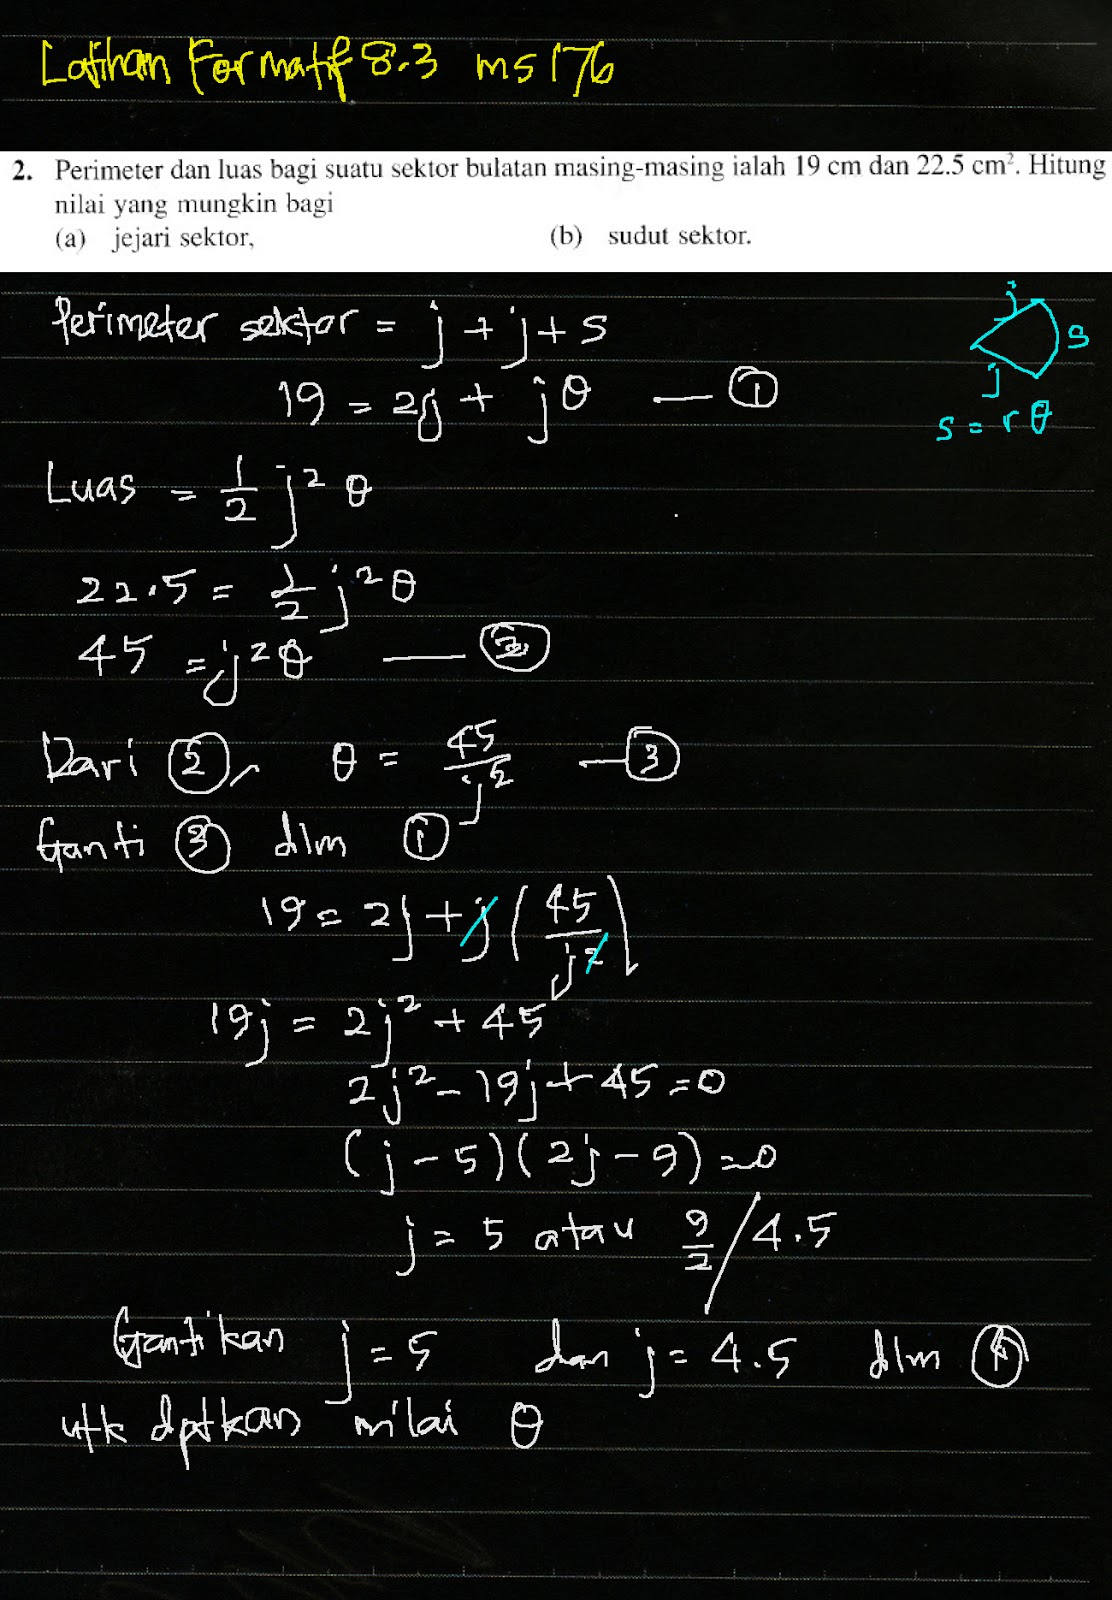 Latihan Formatif 8.3 ms 176
2. Perimeter dan luas bagi suatu sektor bulatan masing-masing ialah 19 cm dan 22.5 cm². Hitung
nilai yang mungkin bagi
(a) jejari sektor, (b) sudut sektor.
Perimeter sektor = j + j + s
19 = 2j + jθ — ①
j
s
j
s = rθ
Luas = 1/2 j² θ
22.5 = 1/2 j²θ
45 = j²θ — ②
Dari ②, θ = 45/j² — ③
Ganti ③ dlm ①
19 = 2j + j(45/j²)
19j = 2j² + 45
2j² - 19j + 45 = 0
(j - 5)(2j - 9) = 0
j = 5 atau 9/2 / 4.5
Gantikan j = 5 dan j = 4.5 dlm ①
utk dptkan nilai θ